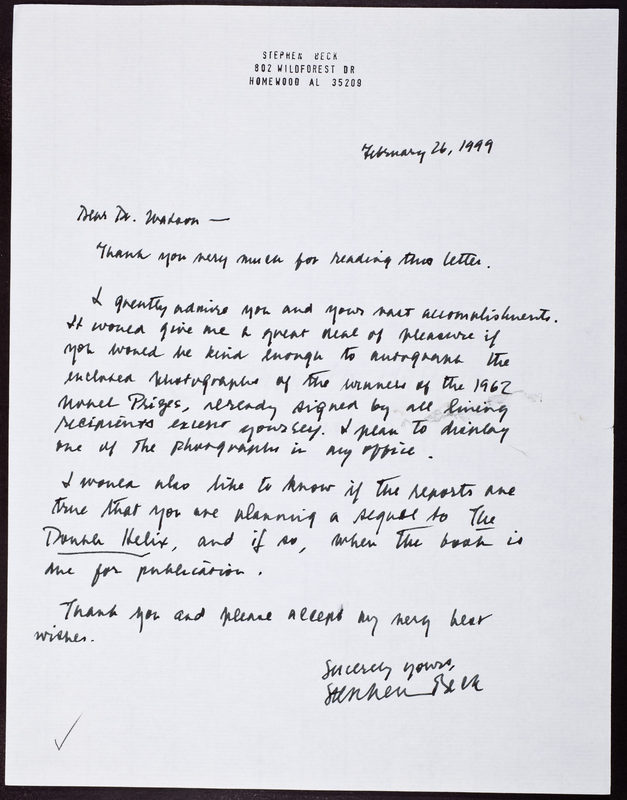 STEPHEN BECK
802 WILDFOREST DR
HOMEWOOD AL 35209
February 26, 1999
Dear Dr. Watson —
Thank you very much for reading this letter.
I greatly admire you and your vast accomplishments.
It would give me a great deal of pleasure if
you would be kind enough to autograph the
enclosed photographs of the winners of the 1962
Nobel Prizes, already signed by all living
recipients except yourself. I plan to display
one of the photographs in my office.
I would also like to know if the reports are
true that you are planning a sequel to The
Double Helix, and if so, when the book is
due for publication.
Thank you and please accept my very best
wishes.
Sincerely yours,
Stephen Beck